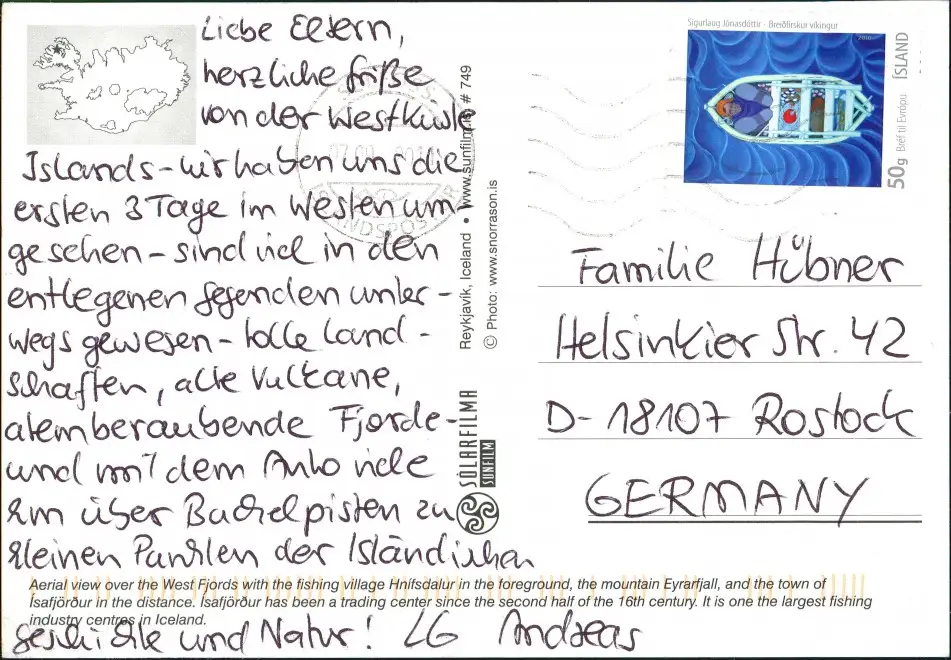 Liebe Eltern,
herzliche Grüße
von der Westküste
Islands - wir haben uns die
ersten 3 Tage im Westen um-
gesehen - sind viel in den
entlegenen Gegenden unter-
wegs gewesen - tolle Land-
schaften, alte Vulkane,
atemberaubende Fjorde -
und mit dem Auto viele
km über Buckelpisten zu
kleinen Punkten der Isländischen
Geschichte und Natur! LG Andreas
Aerial view over the West Fjords with the fishing village Hnífsdalur in the foreground, the mountain Eyrarfjall, and the town of
Ísafjörður in the distance. Ísafjörður has been a trading center since the second half of the 16th century. It is one the largest fishing
industry centres in Iceland.
SOLARFILMA
SUNFILM
Reykjavik, Iceland • www.sunfilm.is # 749
© Photo: www.snorrason.is
Sigurlaug Jónasdóttir - Breiðfirskur víkingur
2010
ÍSLAND
Bréf til Evrópu
50g
Familie Hübner
Helsinkier Str. 42
D-18107 Rostock
GERMANY